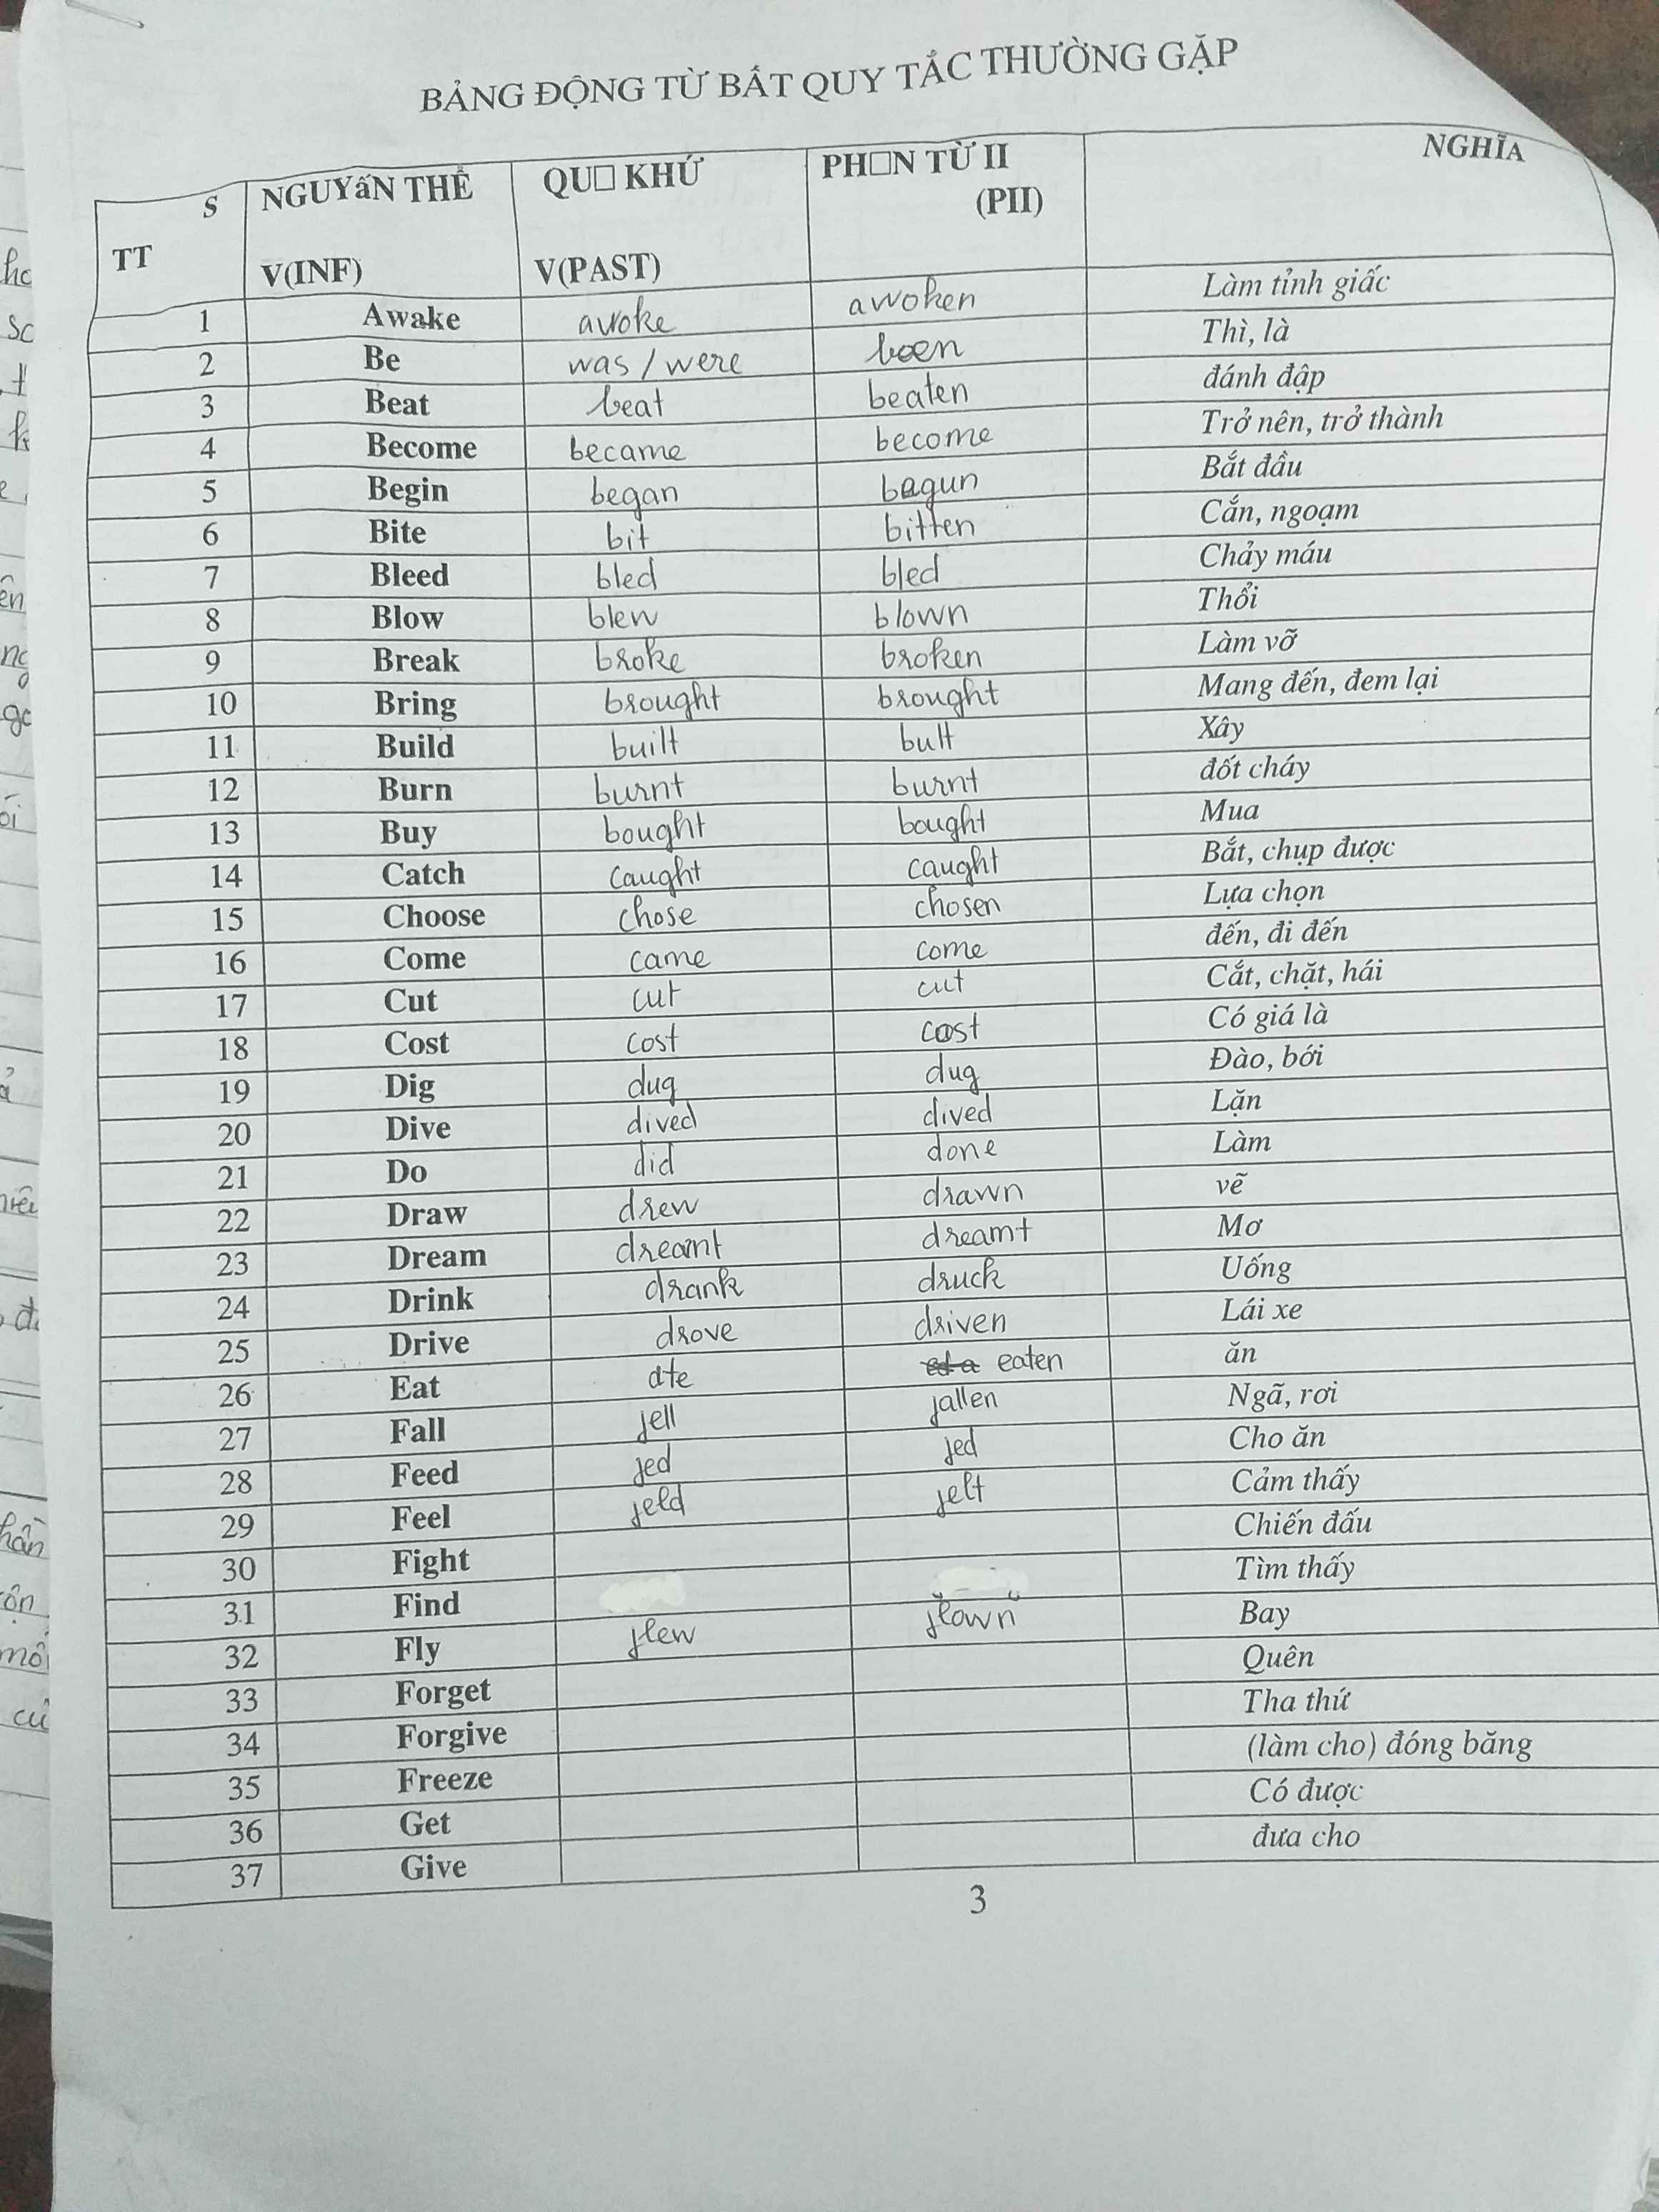 BẢNG ĐỘNG TỪ BẤT QUY TẮC THƯỜNG GẶP
S TT NGUYấN THỂ V(INF) QU□ KHỨ V(PAST) PH□N TỪ II (PII) NGHĨA
1 Awake awoke awoken Làm tỉnh giấc
2 Be was / were been Thì, là
3 Beat beat beaten đánh đập
4 Become became become Trở nên, trở thành
5 Begin began begun Bắt đầu
6 Bite bit bitten Cắn, ngoạm
7 Bleed bled bled Chảy máu
8 Blow blew blown Thổi
9 Break broke broken Làm vỡ
10 Bring brought brought Mang đến, đem lại
11 Build built bult Xây
12 Burn burnt burnt đốt cháy
13 Buy bought bought Mua
14 Catch caught caught Bắt, chụp được
15 Choose chose chosen Lựa chọn
16 Come came come đến, đi đến
17 Cut cut cut Cắt, chặt, hái
18 Cost cost cost Có giá là
19 Dig dug dug Đào, bới
20 Dive dived dived Lặn
21 Do did done Làm
22 Draw drew drawn vẽ
23 Dream dreamt dreamt Mơ
24 Drink drank druck Uống
25 Drive drove driven Lái xe
26 Eat ate eaten ăn
27 Fall fell fallen Ngã, rơi
28 Feed fed fed Cho ăn
29 Feel feld felt Cảm thấy
30 Fight Chiến đấu
31 Find Tìm thấy
32 Fly flew flown Bay
33 Forget Quên
34 Forgive Tha thứ
35 Freeze (làm cho) đóng băng
36 Get Có được
37 Give đưa cho
3